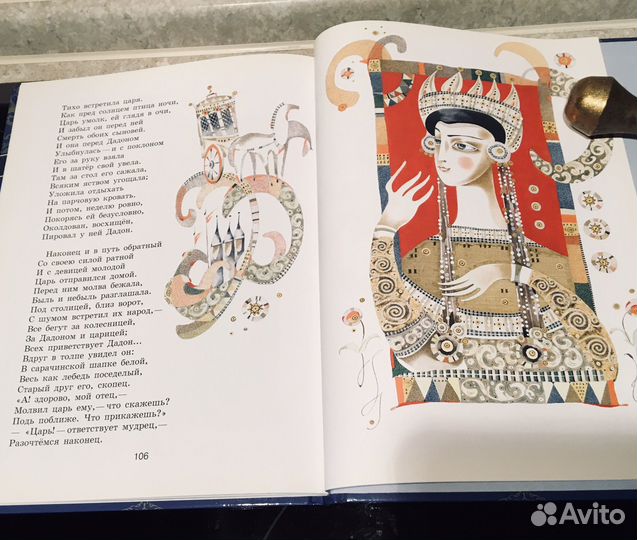 Тихо встретила царя.
Как пред солнцем птица ночи,
Царь умолк, ей глядя в очи,
И забыл он перед ней
Смерть обоих сыновей.
И она перед Дадоном
Улыбнулась — и с поклоном
Его за руку взяла
И в шатёр свой увела.
Там за стол его сажала,
Всяким яством угощала;
Уложила отдыхать
На парчовую кровать.
И потом, неделю ровно,
Покорясь ей безусловно,
Околдован, восхищён,
Пировал у ней Дадон.
Наконец и в путь обратный
Со своею силой ратной
И с девицей молодой
Царь отправился домой.
Перед ним молва бежала,
Быль и небыль разглашала.
Под столицей, близ ворот,
С шумом встретил их народ,—
Все бегут за колесницей,
За Дадоном и царицей;
Всех приветствует Дадон...
Вдруг в толпе увидел он:
В сарачинской шапке белой,
Весь как лебедь поседелый,
Старый друг его, скопец.
«А! здорово, мой отец,—
Молвил царь ему,— что скажешь?
Подь поближе. Что прикажешь?»
— «Царь! — ответствует мудрец,—
Разочтёмся наконец.
106
Avito